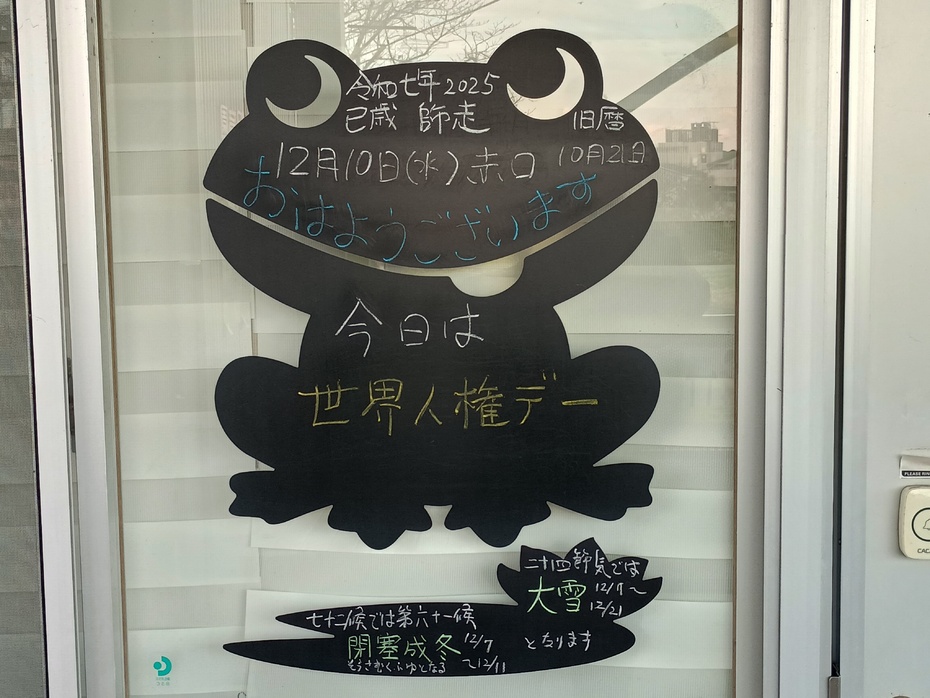 令和七年2025
巳歳 師走
旧暦
12月10日(水)赤口 10月21日
おはようございます
今日は
世界人権デー
二十四節気では
大雪 12/7〜
12/21
七十二候では第六十一候
閉塞成冬 12/7
〜12/11
そらさむくふゆとなる
となります
PLEASE RIN